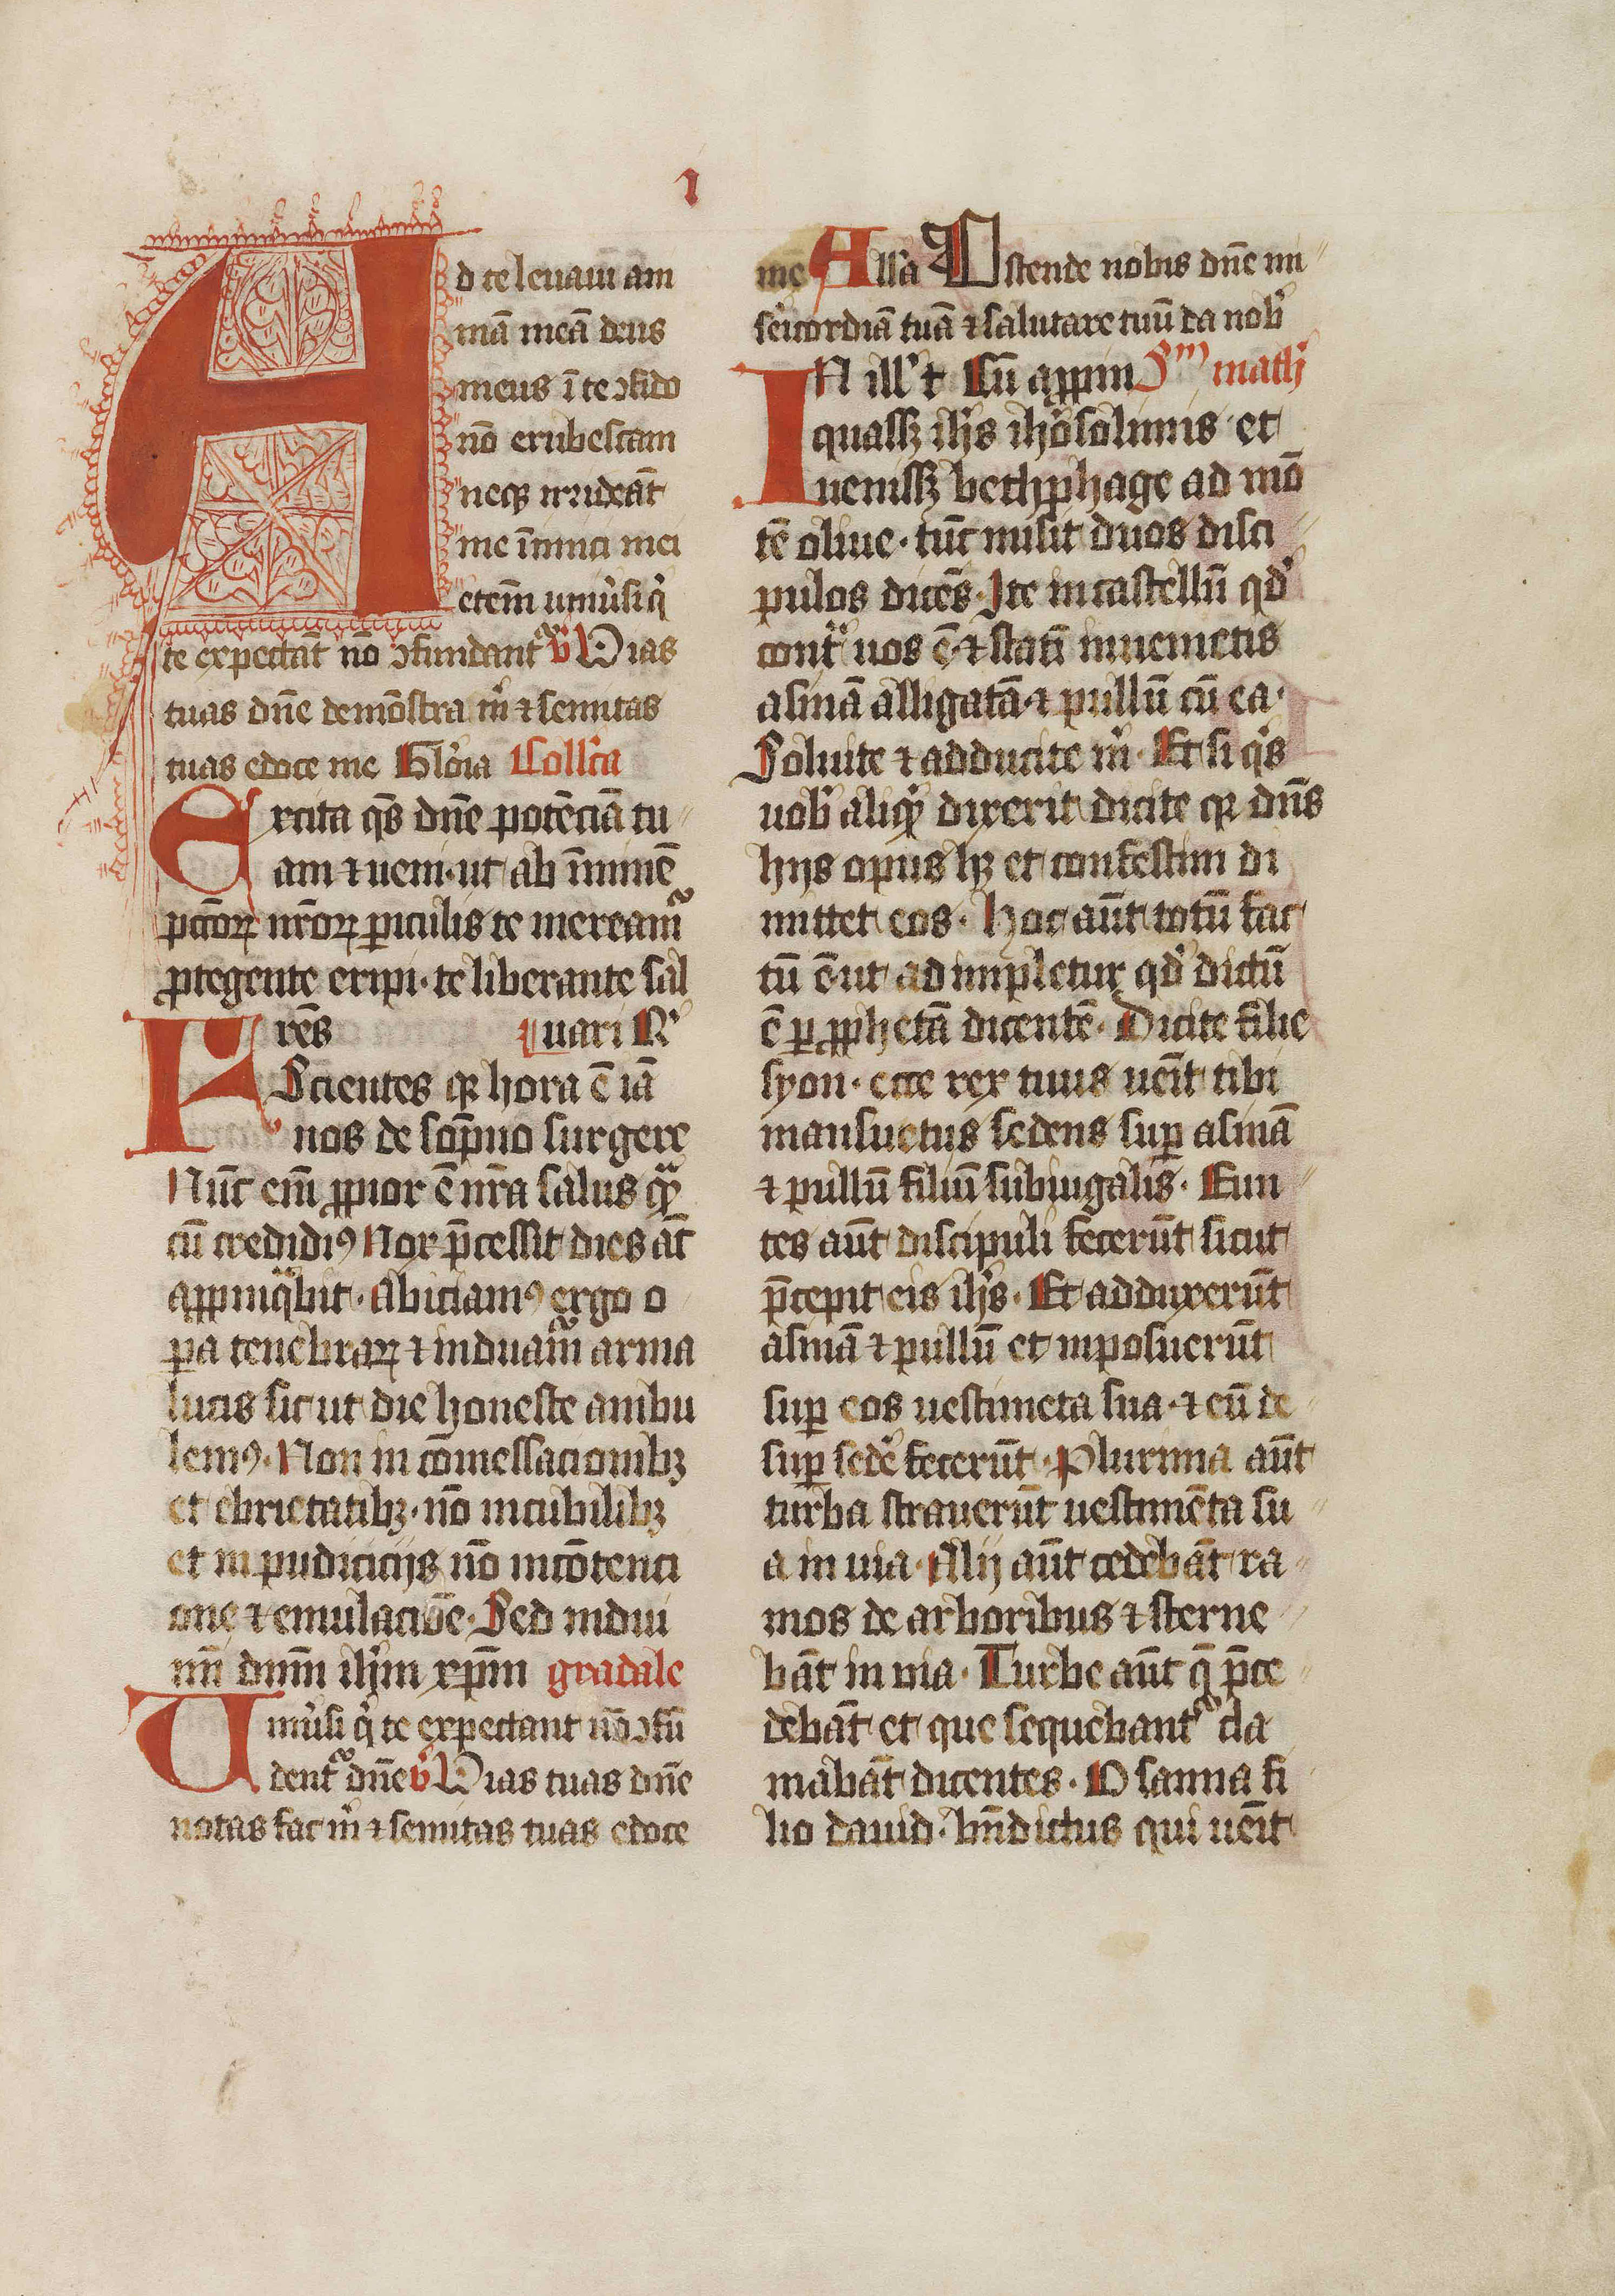 I
Ad te leuaui ani
mā meā deus
meus ī te ꝯfido
nō erubescam
neqꝫ irrideāt
me īimici mei
etem̄ uniu̾si q̾
te expectāt nō ꝯfundant᷑ v̾ Uias
tuas dn̄e demōstra m̾ ⁊ semitas
tuas edoce me Glo̾ia Coll̾ta
Excita q̄s dn̄e potēciā tu
am ⁊ ueni · ut ab īminē
pctōꝝ nr̄oꝝ ꝑiculis te meream᷑
ꝓtegente eripi · te liberante sal
Frēs
Scientes qꝛ hora ē iā
nos de sop̄no surgere
Nūc em̄ ꝓpior ē nr̄a salus qᷓꝫ
cū credidiꝯ Nox p̄cessit dies āt
aꝓpinqᷓbit · Abiciamꝯ ergo o
ꝑa tenebraꝝ ⁊ induam᷑ arma
lucis sicut die honeste ambu
lemꝯ · Non in cōmessacionibꝫ
et ebrietatibꝫ · nō in cubilibꝫ
et inpudicicijs nō in cōtenci
one ⁊ emulaciōe · Sed indui
mī dnm̄ ihm̄ xp̄m gradale
Uniu̾si q̾ te expectant nō ꝯfū
dent᷑ dn̄e v̾ Uias tuas dn̄e
notas fac m̾ ⁊ semitas tuas edoce
me All̾a Ostende nobis dn̄e mi
se̾icordiā tuā ⁊ salutare tuū da nob̾
IN ill̾ t̾ Cū aꝓpin Sm math̾
quassꝫ ih̾s iho̾solimis et
uenissꝫ bethphage ad mō
tē oliue · tūc misit duos disci
pulos dicēs · Ite in castellū qd̾
contᷓ uos ē · ⁊ statī inuenietis
asinā alligatā ⁊ pullū cū ea ·
Soluite ⁊ adducite m̾ · Et si q̾s
uob̾ aliqͥꝫ dixerit dicite qꝛ dn̄s
hijs opus hꝫ et confestim di
mittet eos · Hoc aūt totū fac
tū ē ut adimpletur qd̾ dictū
ē ꝑ ꝓphetā dicentē · Dicite filie
syon · ecce rex tuus ueīt tibi
mansuetus sedens suꝑ asinā
⁊ pullū filiū subiugalis · Eun
tes aūt discipuli fecerūt sicut
p̄cepit eis ih̾s · Et adduxerūt
asinā ⁊ pullū et inposuerūt
suꝑ eos uestimeta sua · ⁊ eū de
suꝑ sede̾ fecerūt · Plurima aūt
turba strauerūt uestimēta su
a in uia · Alij aūt cedebāt ra
mos de arboribus ⁊ sterne
bāt in uia · Turbe aūt q̄ p̄ce
debāt et que sequebant᷑ cla
mabāt dicentes · Osanna fi
lio dauid · bn̄dictus qui ueīt